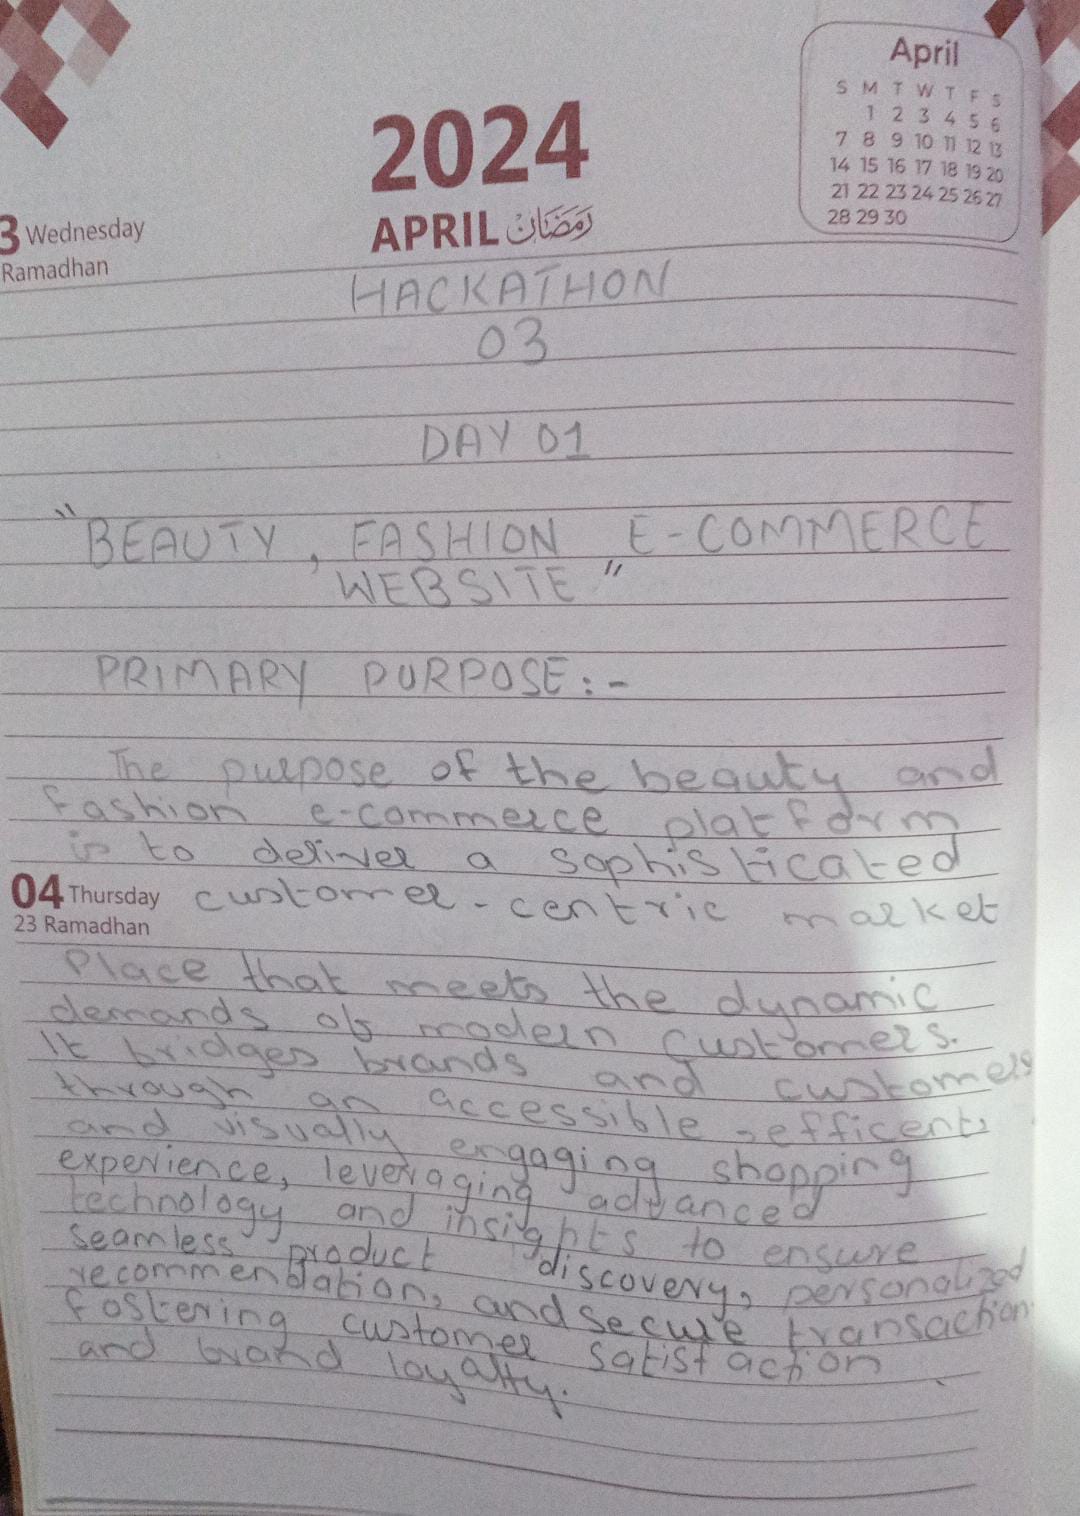 April
S M T W T F S
1 2 3 4 5 6
7 8 9 10 11 12 13
14 15 16 17 18 19 20
21 22 23 24 25 26 27
28 29 30
2024
APRIL رَمَضَان
3 Wednesday
Ramadhan
HACKATHON
03
DAY 01
"BEAUTY, FASHION E-COMMERCE
WEBSITE"
PRIMARY PURPOSE:-
The purpose of the beauty and
fashion e-commerce platform
is to deliver a sophisticated
04 Thursday
23 Ramadhan
customer-centric market
Place that meets the dynamic
demands of modern Customers.
It bridges brands and customers
through an accessible, efficent,
and visually engaging shopping
experience, leveraging advanced
technology and insights to ensure
seamless product discovery, personalized
recommendation, and secure transaction
fostering customer satisfaction
and brand loyalty.